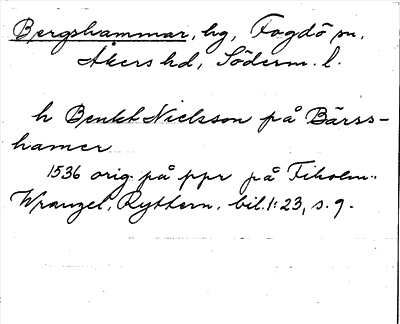 Bergshammar, hg, Fogdö sn,
Åkers hd, Söderm. l.
h Benkt Nielsson på Bärss-
hamer
1536 orig. på ppr på Fiholm..
Wrangel, Ryttern. bil. 1:23, s. 9.